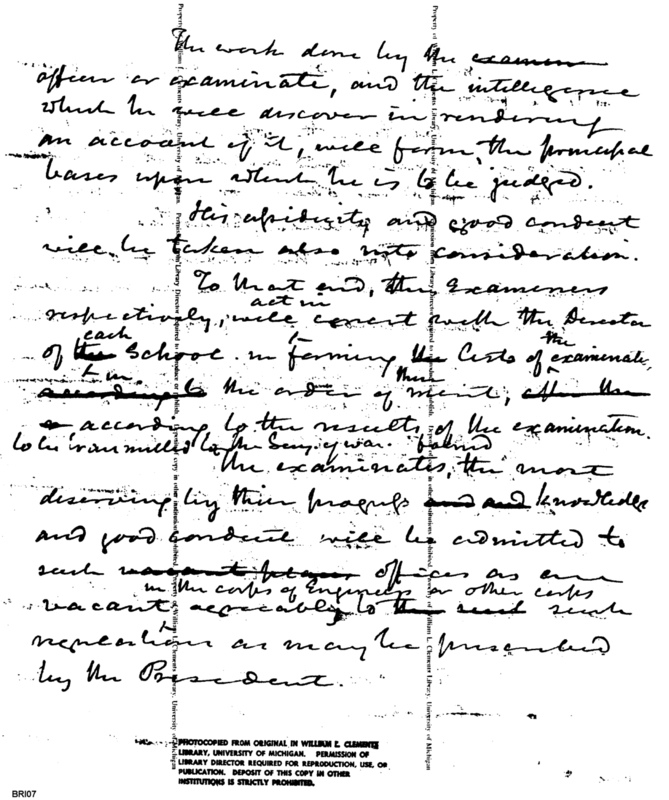 The work done by the examin
officer or examinate, and the intelligence
which he will discover in rendering
an account of it, will form, the principal
bases upon which he is to be judged.
His assiduity and good conduct
will be taken also into consideration.
To that end, the Examiners
act in
respectively, will concert with the Director
each the
of the School in forming the Lists of examinate,
in their
according to the order of merit, after the
according to the results of the examination.
to be transmitted to the Secy. of war. found
The examinates, the most
deserving by their progress and and knowledge
and good conduct will be admitted to
such vacant places offices as are
in the corps of Engineers or other corps
vacant agreeably to the such
regulation as may be prescribed
by the President.
PHOTOCOPIED FROM ORIGINAL IN WILLIAM L. CLEMENTS
LIBRARY, UNIVERSITY OF MICHIGAN. PERMISSION OF
LIBRARY DIRECTOR REQUIRED FOR REPRODUCTION, USE, OR
PUBLICATION. DEPOSIT OF THIS COPY IN OTHER
INSTITUTIONS IS STRICTLY PROHIBITED.
BRI07